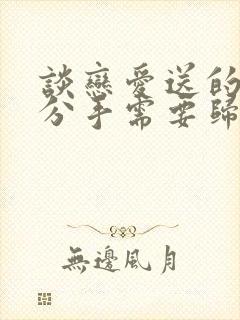 談戀愛送的
分手需要歸
無邊風月